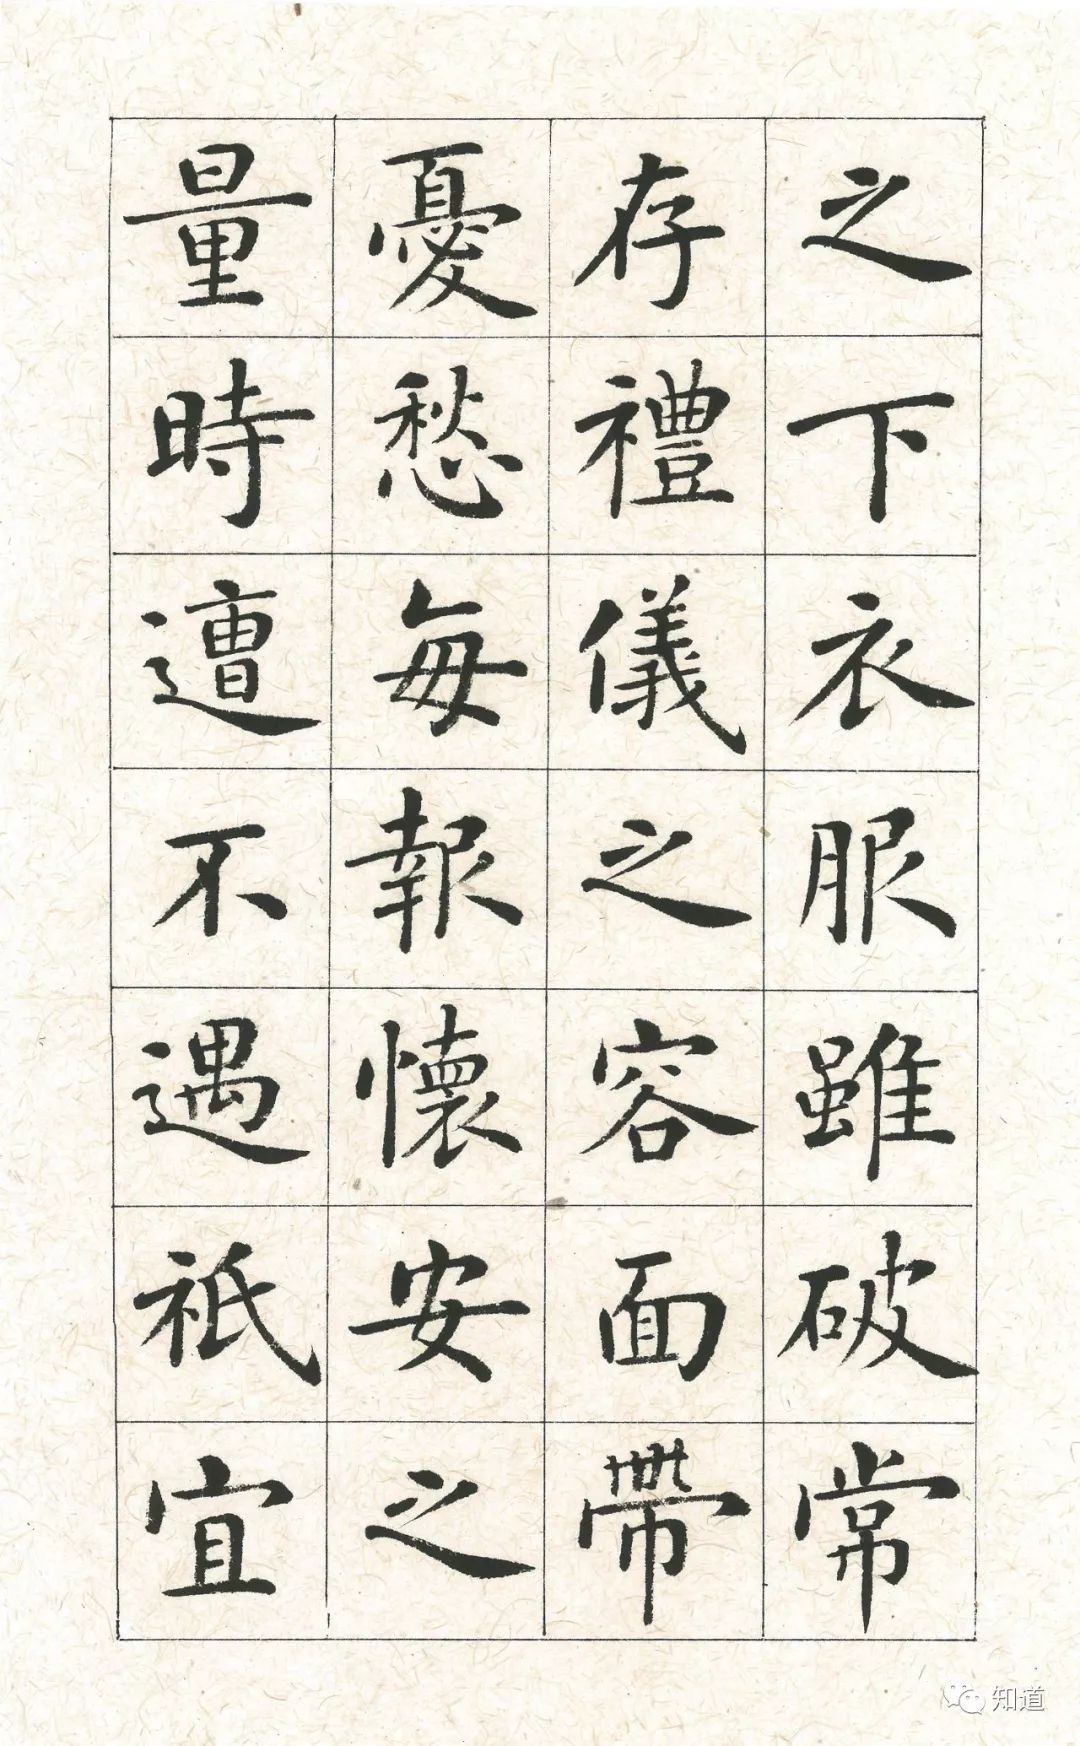 之下衣服雖破常
存禮儀之容面帶
憂愁每報懷安之
量時遭不遇祇宜
知道